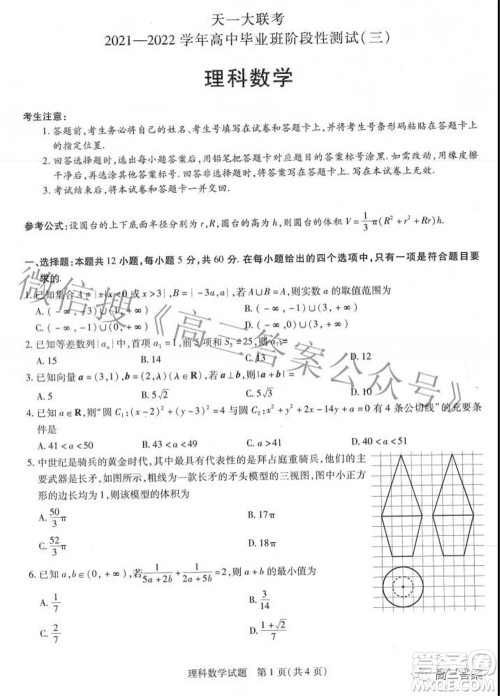 天一大联考
2021—2022 学年高中毕业班阶段性测试(三)
理科数学
考生注意:
1. 答题前,考生务必将自己的姓名、考生号填写在试卷和答题卡上,并将考生号条形码粘贴在答题卡上
的指定位置.
2. 回答选择题时,选出每小题答案后,用铅笔把答题卡对应题目的答案标号涂黑.如需改动,用橡皮擦
干净后,再选涂其他答案标号.回答非选择题时,将答案写在答题卡上.写在本试卷上无效.
3. 考试结束后,将本试卷和答题卡一并交回.
参考公式:设圆台的上下底面半径分别为 r,R,圆台的高为 h,则圆台的体积 V=1/3π(R²+r²+Rr)h.
一、选择题:本题共 12 小题,每小题 5 分,共 60 分.在每小题给出的四个选项中,只有一项是符合题目要
求的.
1. 已知集合 A={x|x<0 或 x>3},B={-3a,a},若 A∪B=A,则实数 a 的取值范围为
A. (-∞,0) B. (3,+∞)
C. (-∞,-1)∪(3,+∞) D. (-∞,0)∪(3,+∞)
A. 15 B. 14 C. 13 D. 12
3. 已知向量 a=(3,1),b=(2,λ)(λ∈R),若 a⊥b,则|a+b|=
A. 5 B. 5√2 C. 5√3
4. 已知 a∈R,则“圆 C₁:(x-2)²+(y-3)²=4 与圆 C₂:x²+y²+2x-14y+a=0 有 4 条公切线”的充要条
件是
A. 41<a<50 D. 40<a<50
5. 中世纪是骑兵的黄金时代,其中最具有代表性的是拜占庭重骑兵,其有一
主要武器是长矛.如图所示,粗线画的是一长矛的矛头模型的三视图,图中小正方
形的边长均为 1,则该模型的体积为
A. 50/3π B. 17π
C. 52/3π D. 18π
6. 已知 a,b∈(0,+∞),若1/(5a+2b)+1/(2a+5b)=2,则 a+b 的最小值为
A. 2/7 B. 3/14
C. 1/7 D. (1+√2)/7
理科数学试题 第 1 页(共 4 页)
微信搜《高三答案公众号》
高三答案